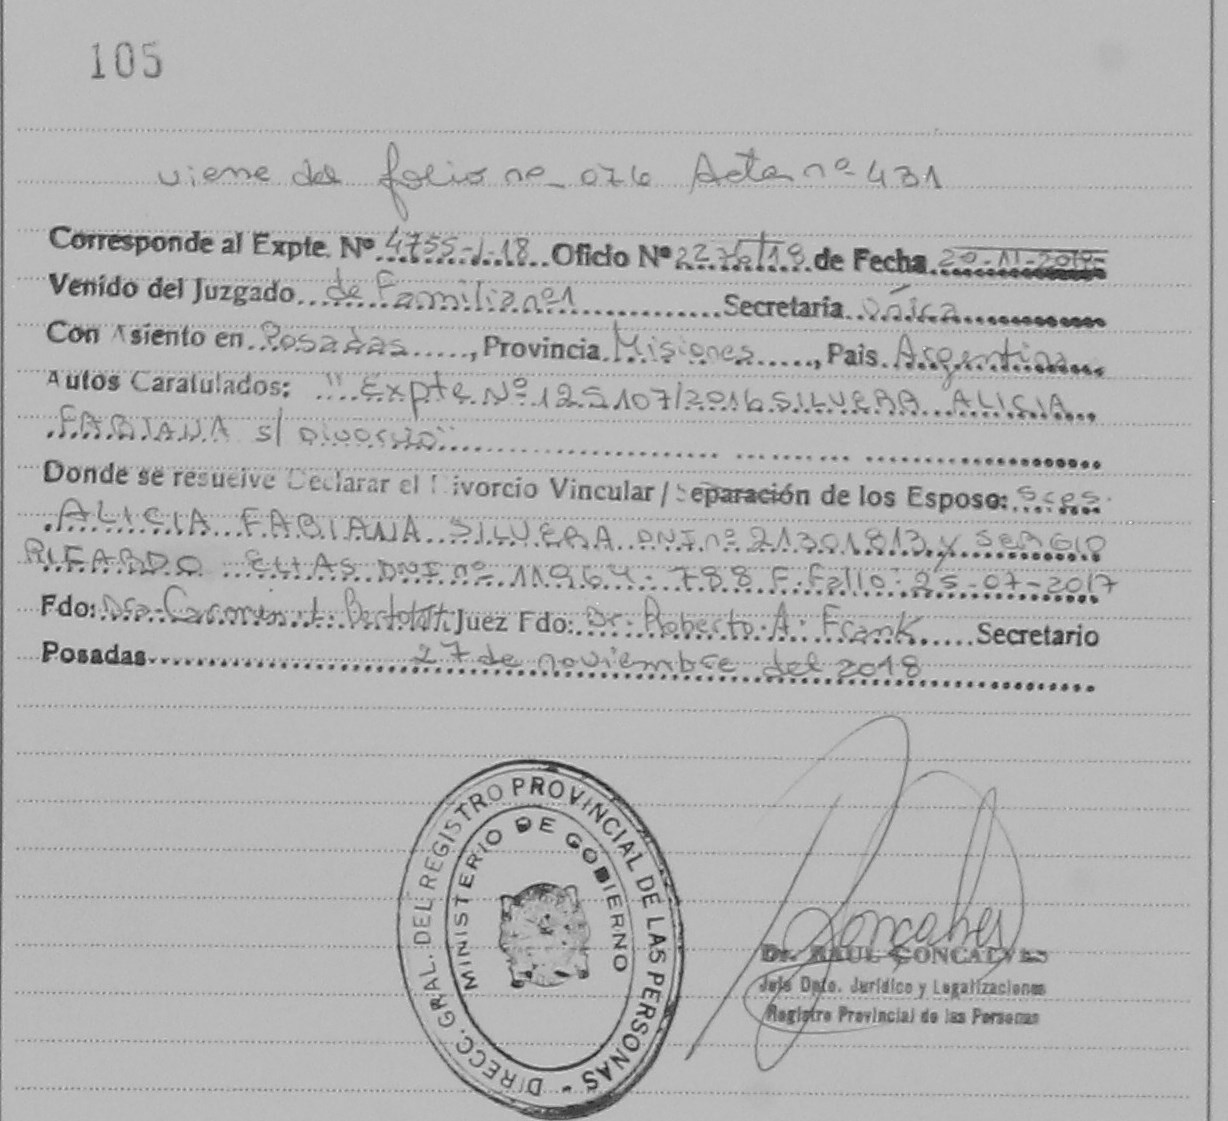 105
viene del folio nº 076 Acta nº 431
Corresponde al Expte. Nº 4755-J-18 Oficio Nº 227 /18 de Fecha 20-11-2018
Venido del Juzgado de Familia nº1 Secretaría Única
Con Asiento en Posadas, Provincia Misiones, Pais Argentina
Autos Caratulados: "Expte Nº 125107/2016 SILVERA ALICIA
FABIANA s/ Divorcio"
Donde se resuelve Declarar el Divorcio Vincular / Separación de los Esposo: Sres.
ALICIA FABIANA SILVERA DNI nº 21301813 y SERGIO
RICARDO ELIAS DNI nº 11964.788 F. Fallo: 25-07-2017
Fdo: Dra. L. Juez Fdo: Dr. Roberto A. Frank Secretario
Posadas 27 de noviembre del 2018
DIRECC. GRAL. DEL REGISTRO PROVINCIAL DE LAS PERSONAS -
MINISTERIO DE GOBIERNO
Goncalves
Dr. RAUL GONCALVES
Jefe Dpto. Jurídico y Legalizaciones
Registro Provincial de las Personas